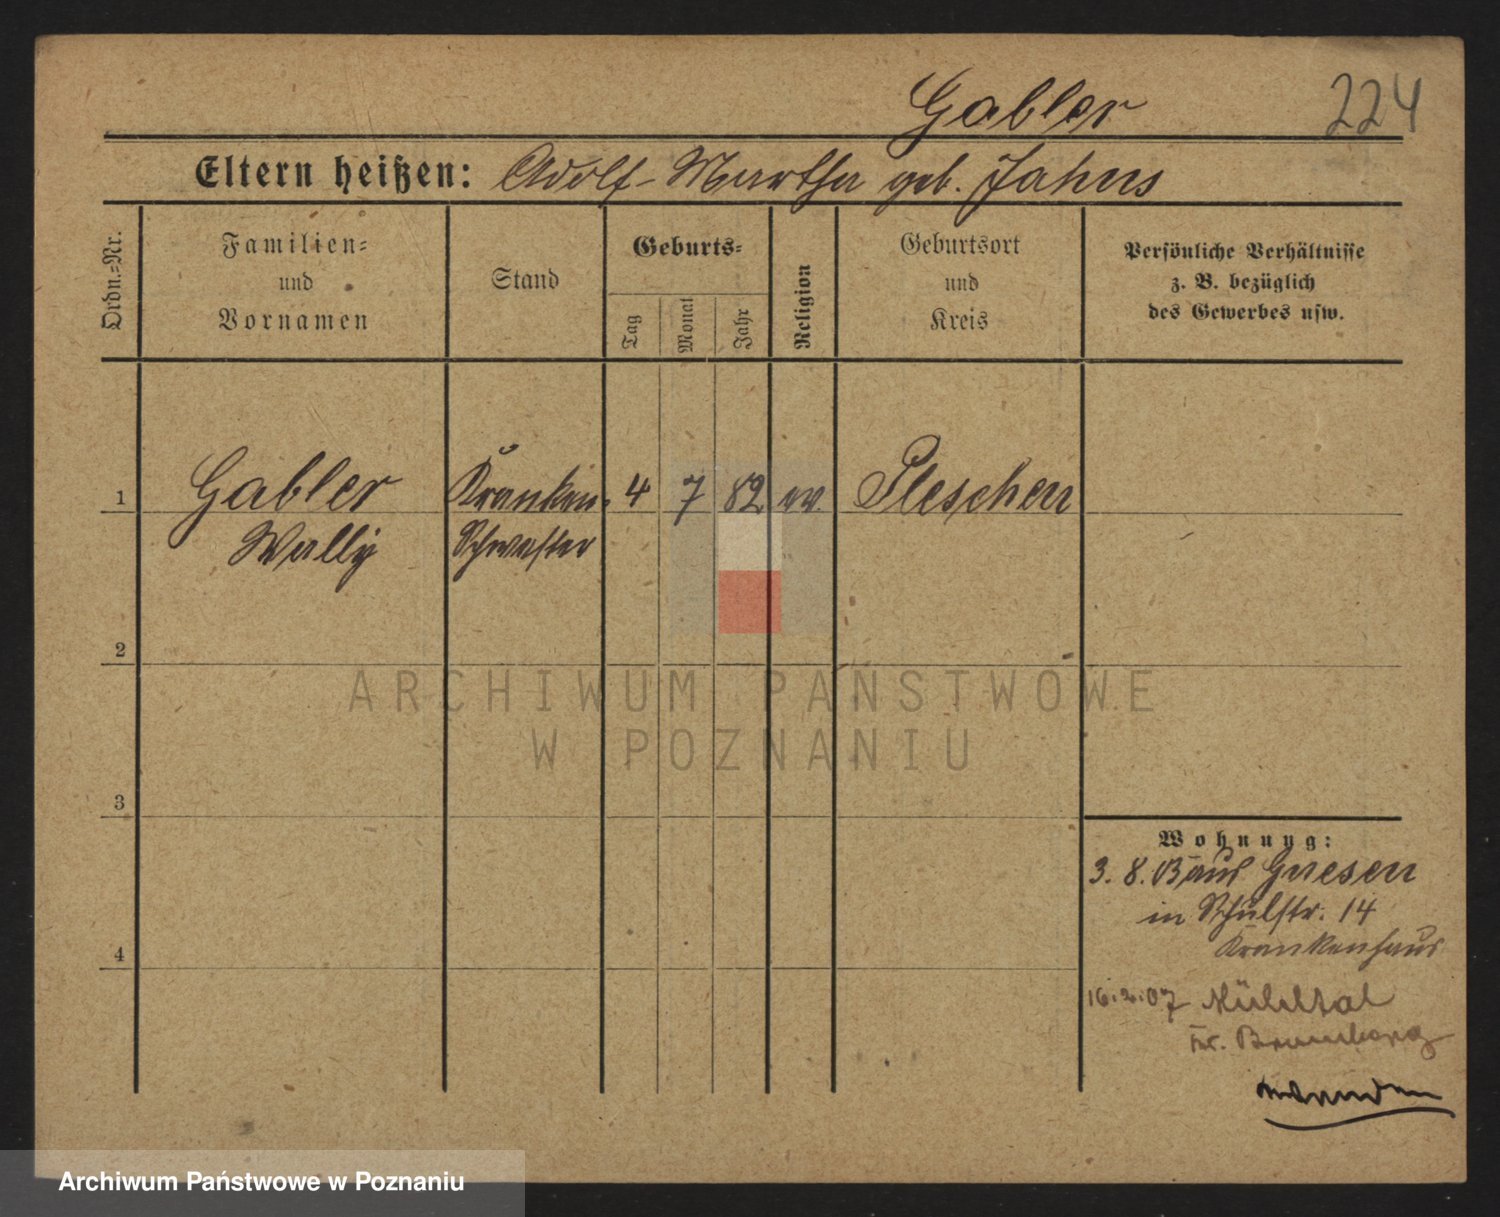 Gabler
224
Eltern heißen: Adolf - Martha geb. Jahns
Ordn.=Nr.
Familien=
und
Vornamen
Stand
Geburts=
Tag
Monat
Jahr
Religion
Geburtsort
und
Kreis
Persönliche Verhältnisse
z. B. bezüglich
des Gewerbes usw.
1
Gabler
Wally
Kranken-
Schwester
4
7
82
ev.
Pleschen
2
3
4
Wohnung:
3. 8. aus Gnesen
in Schulstr. 14
Krankenhaus
16.2.07 Mühltal
Kr. Bromberg
ARCHIWUM PAŃSTWOWE
W POZNANIU
Archiwum Państwowe w Poznaniu